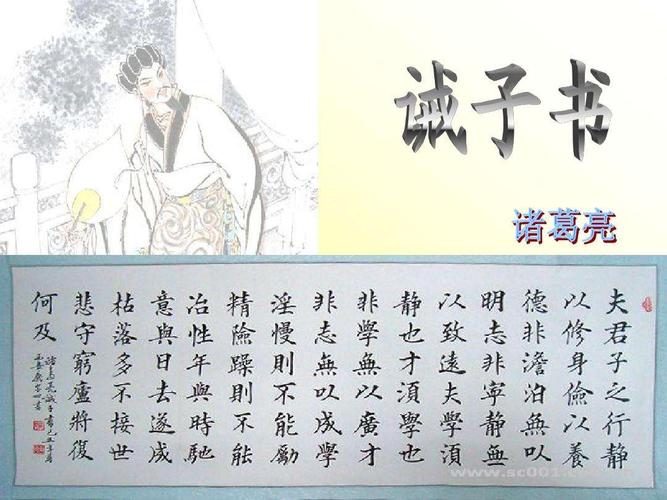 诫子书
诸葛亮
夫君子之行静
以修身儉以養
德非澹泊無以
明志非寧静無
以致遠夫學須
静也才須學也
非學無以廣才
非志無以成學
淫慢則不能勵
精險躁則不能
冶性年與時馳
意與日去遂成
枯落多不接世
悲守窮廬將復
何及
諸葛亮誡子書己丑年
www.sc001.com